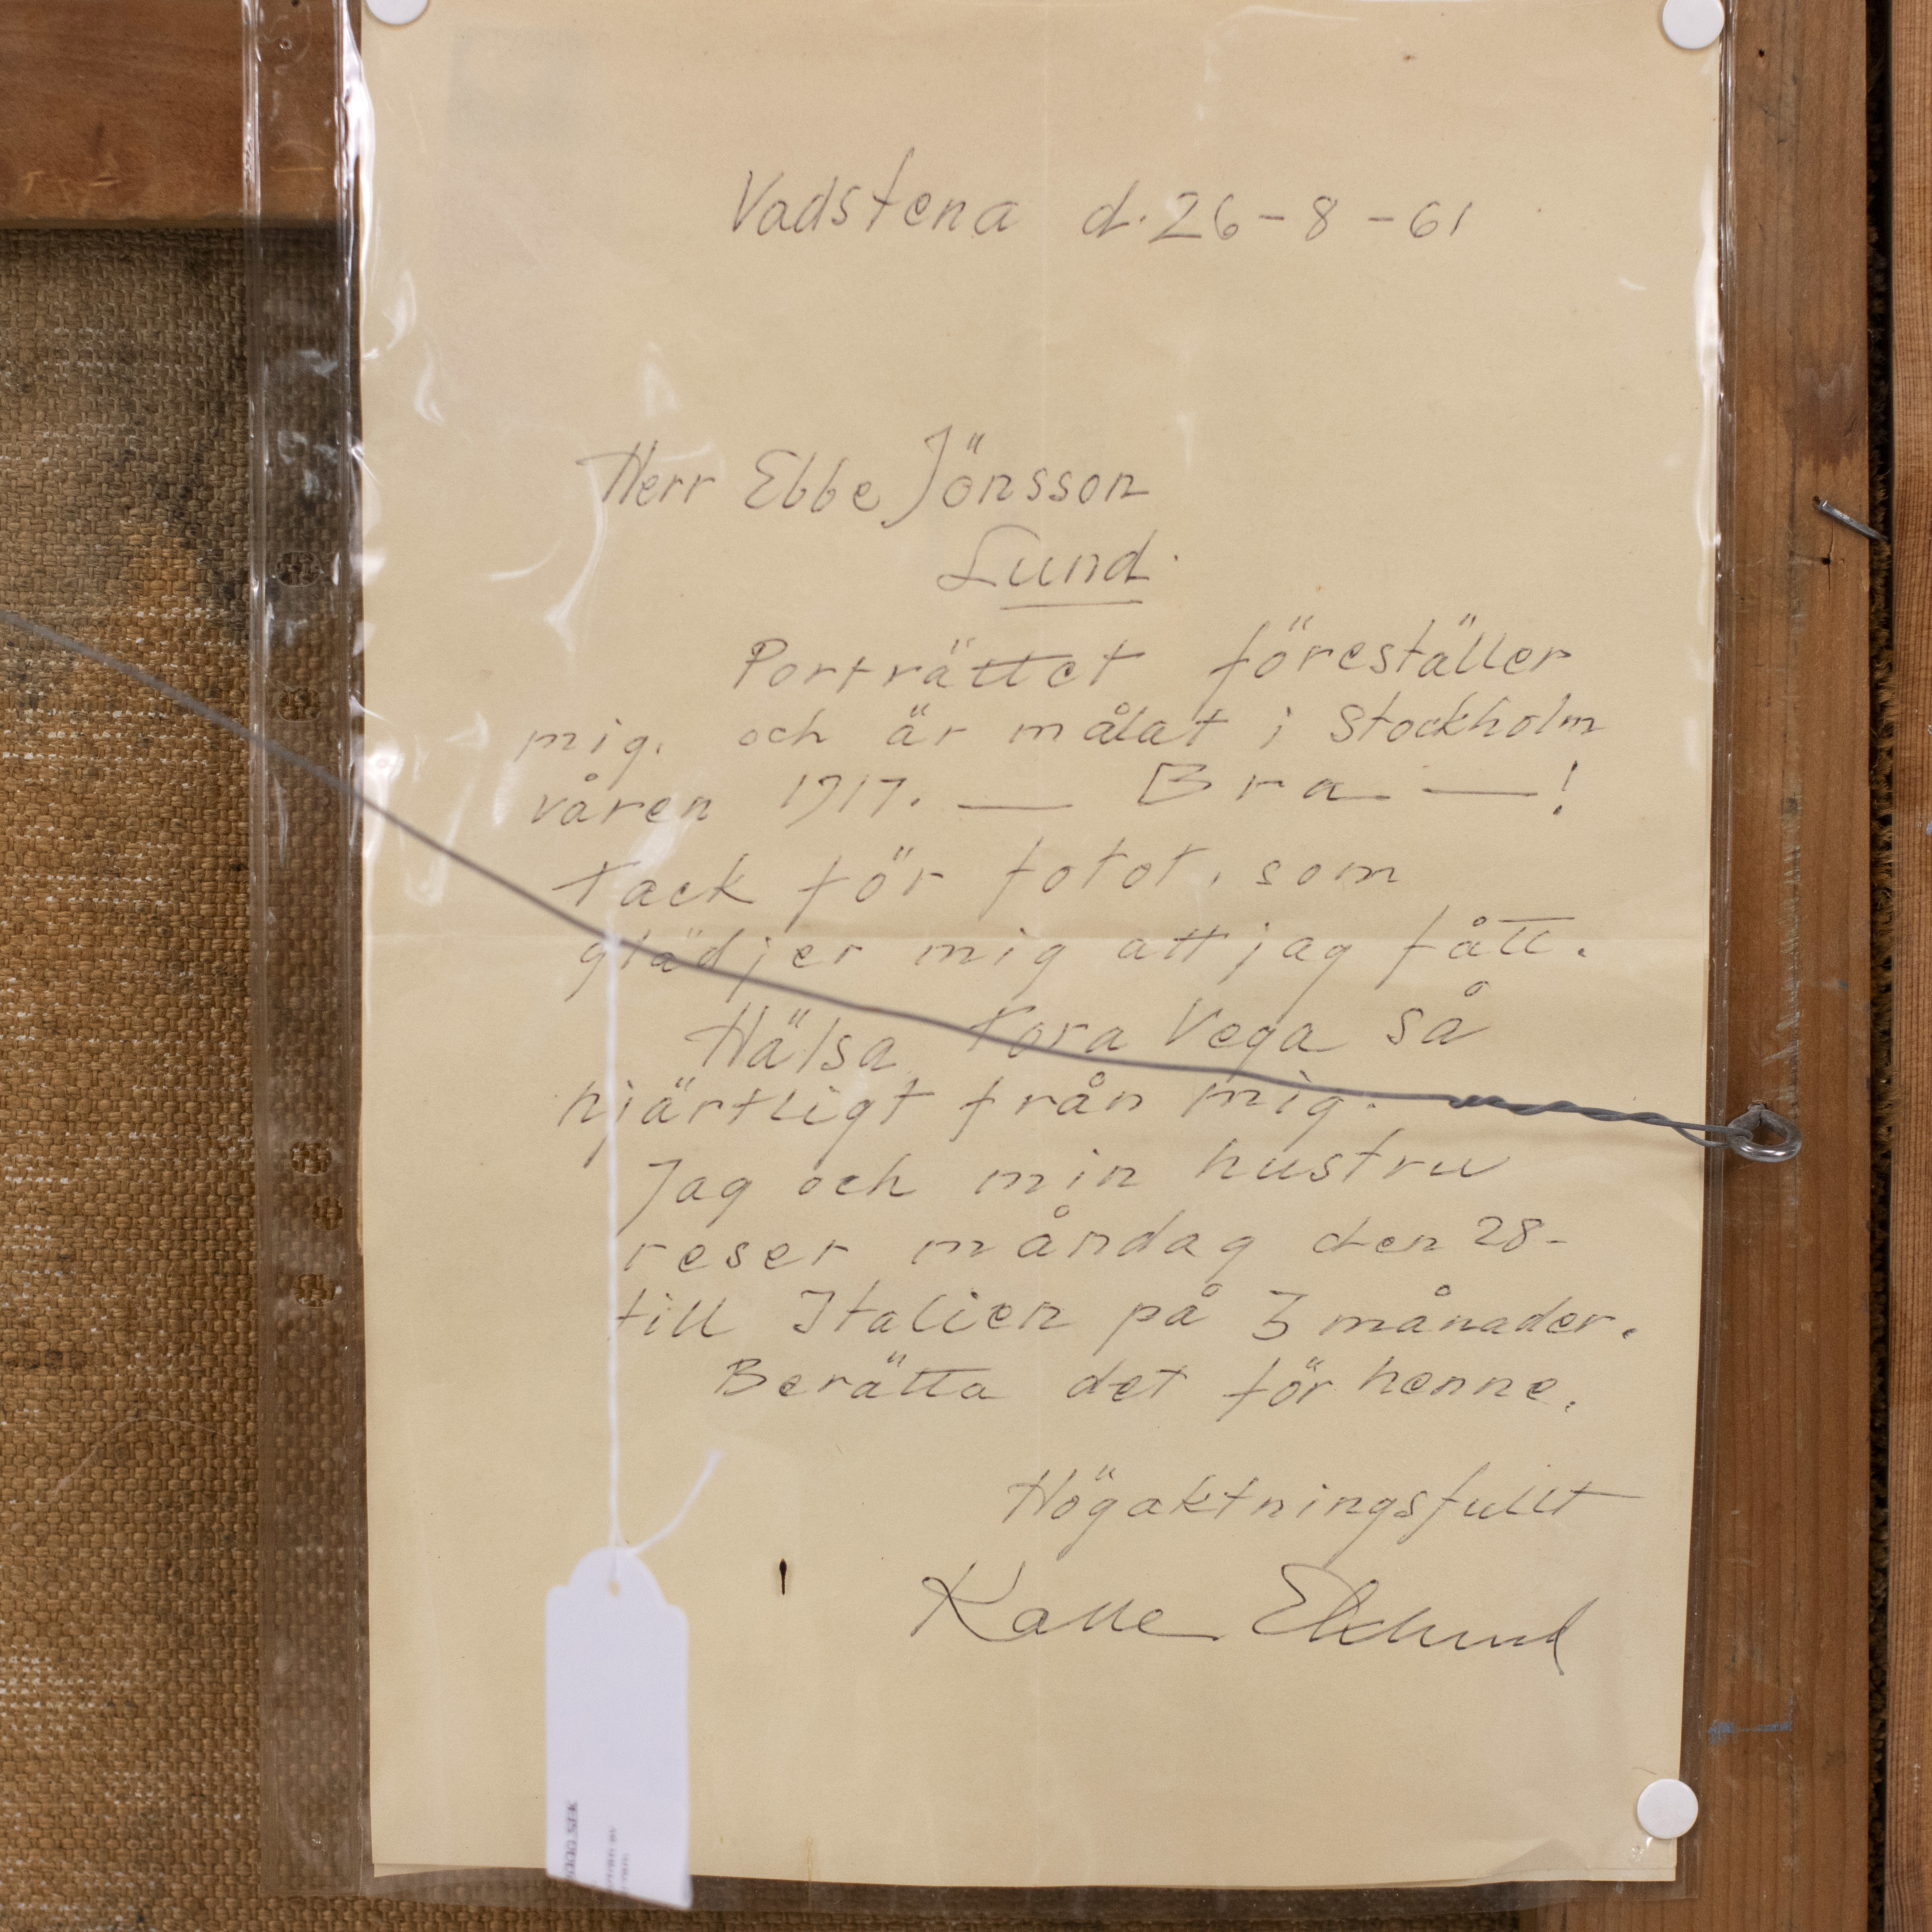 Vadstena d. 26-8-61
Herr Ebbe Jönsson
Lund.
Porträttet föreställer
mig. och är målat i Stockholm
våren 1917. — Bra —!
Tack för fotot, som
glädjer mig att jag fått.
Hälsa Tora Vega så
hjärtligt från mig.
Jag och min hustru
reser måndag den 28-
till Italien på 3 månader.
Berätta det för henne.
Högaktningsfullt
Kalle